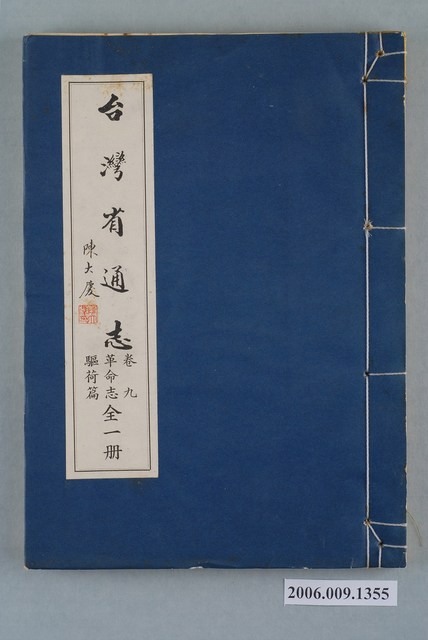 台灣省通志
陳大慶
卷九
革命志
驅荷篇
全一册
2006.009.1355